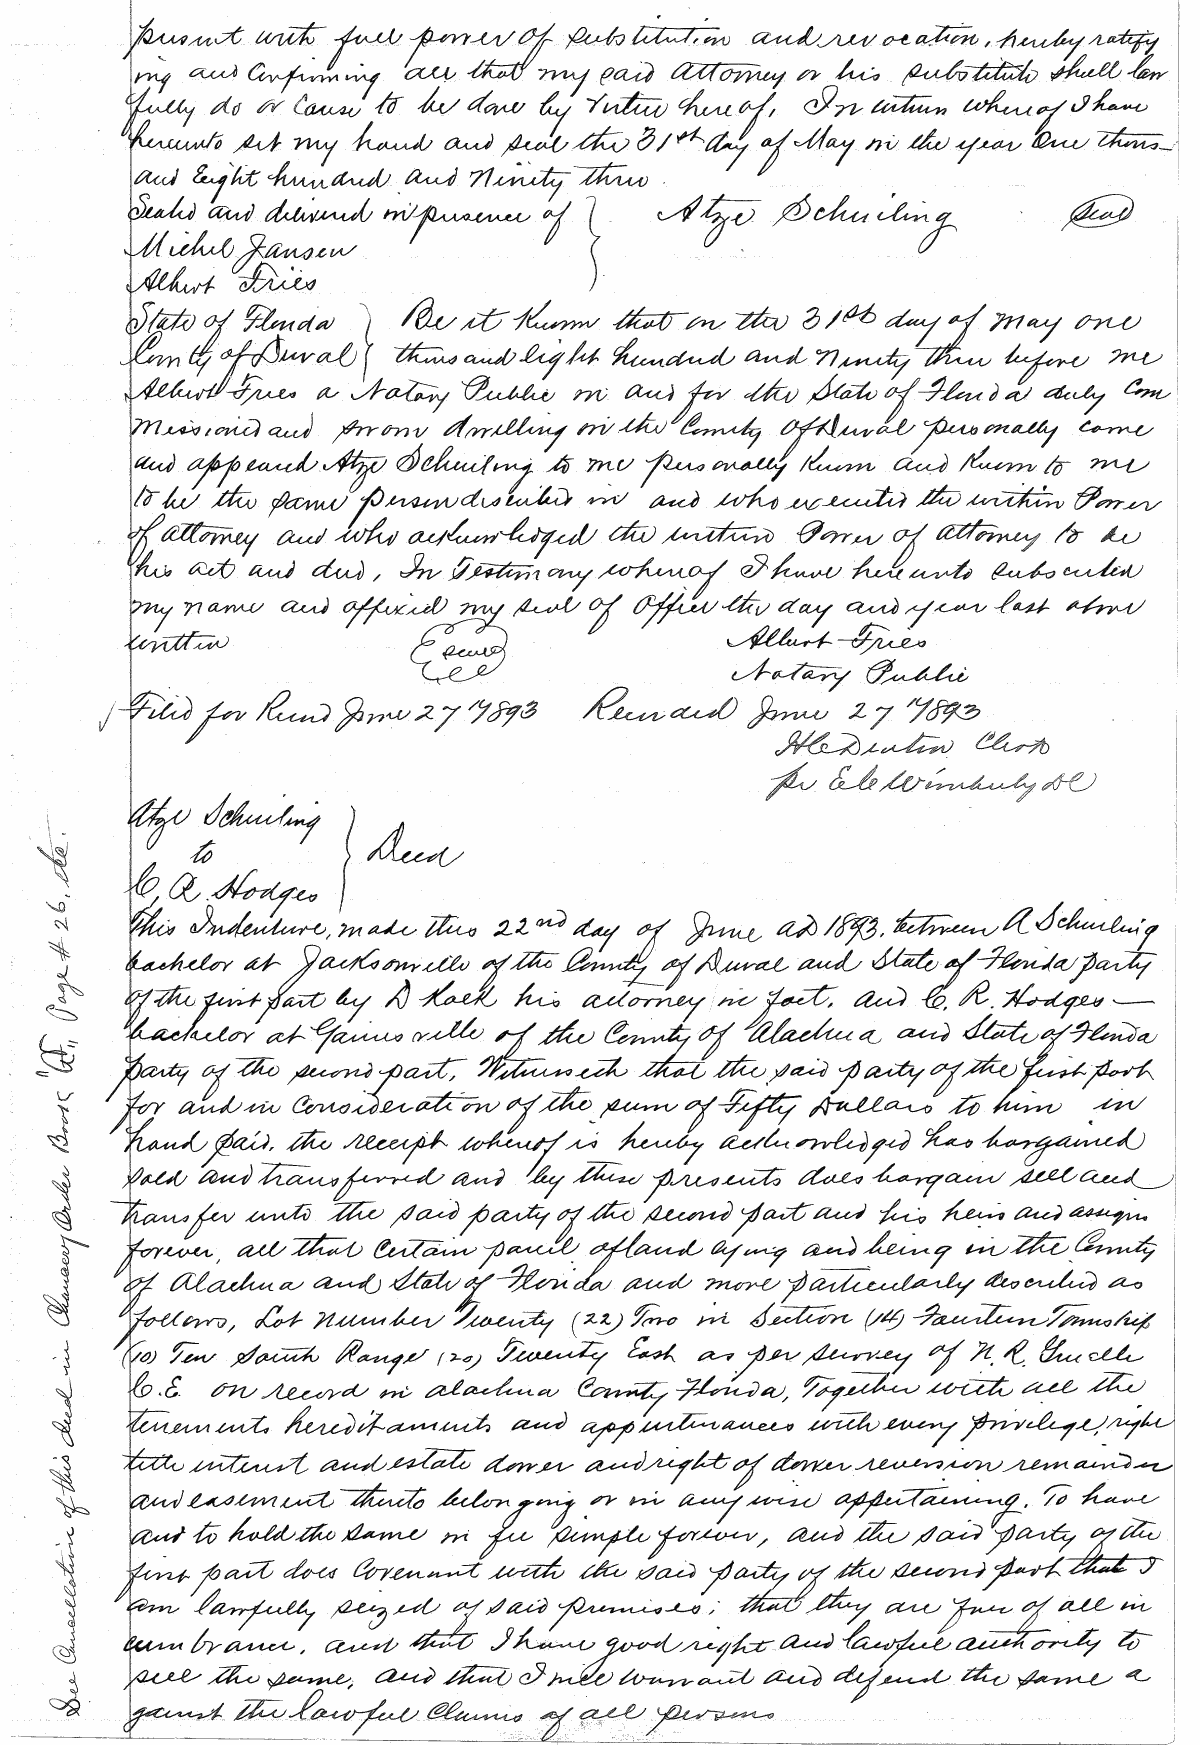 present with full power of substitution and revocation, hereby ratify
ing and Confirming all that my said Attorney or his substitute shall law
fully do or Cause to be done by virtue hereof, In witness whereof I have
hereunto set my hand and seal the 31st day of May in the year One thous
and Eight hundred and Ninety three
Sealed and delivered in presence of } Atze Schuiling Seal
Michel Jansen
Albert Fries
State of Florida } Be it Known that on the 31st day of May one
County of Duval { thousand eight hundred and Ninety three before me
Albert Fries a Notary Public in and for the State of Florida duly Com
missioned and sworn dwelling in the County of Duval personally came
and appeared Atze Schuiling to me personally Known and Known to me
to be the same person described in and who executed the within Power
of attorney and who acknowledged the within Power of Attorney to be
his act and deed, In Testimony whereof I have hereunto subscribed
my name and affixed my seal of Office the day and year last above
written Albert Fries
Notary Public
Filed for Record June 27 1893 Recorded June 27 1893
H C Denton Clerk
pr E C Wimberly DC
Atze Schuiling
to } Deed
C, R. Hodges
This Indenture, made this 22nd day of June AD 1893, between A Schuiling
bachelor at Jacksonville of the County of Duval and State of Florida party
of the first part by D Koek his attorney in fact, and C. R. Hodges —
bachelor at Gainesville of the County of Alachua and State of Florida
party of the second part, Witnesseth that the said party of the first part
for and in Consideration of the sum of Fifty Dollars to him in
hand paid, the receipt whereof is hereby acknowledged has bargained
sold and transferred and by these presents does bargain sell and
transfer unto the said party of the second part and his heirs and assigns
forever, all that Certain parcel of land lying and being in the County
of Alachua and State of Florida and more particularly described as
follows, Lot Number Twenty (22) Two in Section (14) Fourteen Township
(10) Ten South Range (20) Twenty East as per survey of N. R.
C.E. on record in Alachua County Florida, Together with all the
tenements hereditaments and appurtenances with every privilege, right
title interest and estate dower and right of dower reversion remainder
and easement thereto belonging or in anywise appertaining. To have
and to hold the same in fee simple forever, and the said party of the
first part does Covenant with the said party of the second part that I
am lawfully seized of said premises; that they are free of all in
cumbrance, and that I have good right and lawful authority to
sell the same, and that I will warrant and defend the same a
gainst the lawful Claims of all persons
See Cancellation of this deed in Chancery Order Book Page # 26, etc.